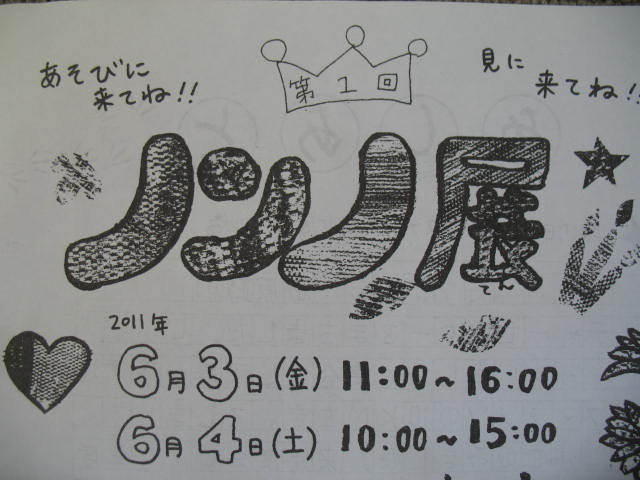 あそびに
来てね!!
第1回
見に
来てね!!
ノンノ展
てん
2011年
6月3日(金) 11:00~16:00
6月4日(土) 10:00~15:00